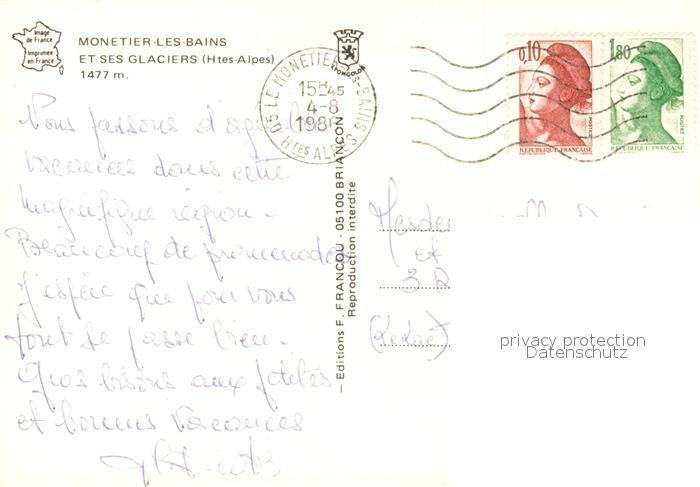 Image
de France
Imprimée
en France
MONETIER-LES-BAINS
ET SES GLACIERS (Htes-Alpes)
1477 m.
05 LE MONETIER-LES-BAINS
15H45
4-8
1986
Htes ALPES
0,10
POSTES
REPUBLIQUE FRANÇAISE
1,80
POSTES
REPUBLIQUE FRANÇAISE
Nous passons d'agréables
vacances dans cette
magnifique région -
Beaucoup de promenades
J'espère que pour vous
tout se passe bien -
Gros bisous aux petites
et bonnes vacances
Editions F. FRANCOU - 05100 BRIANÇON
Reproduction interdite
et
3
privacy protection
Datenschutz